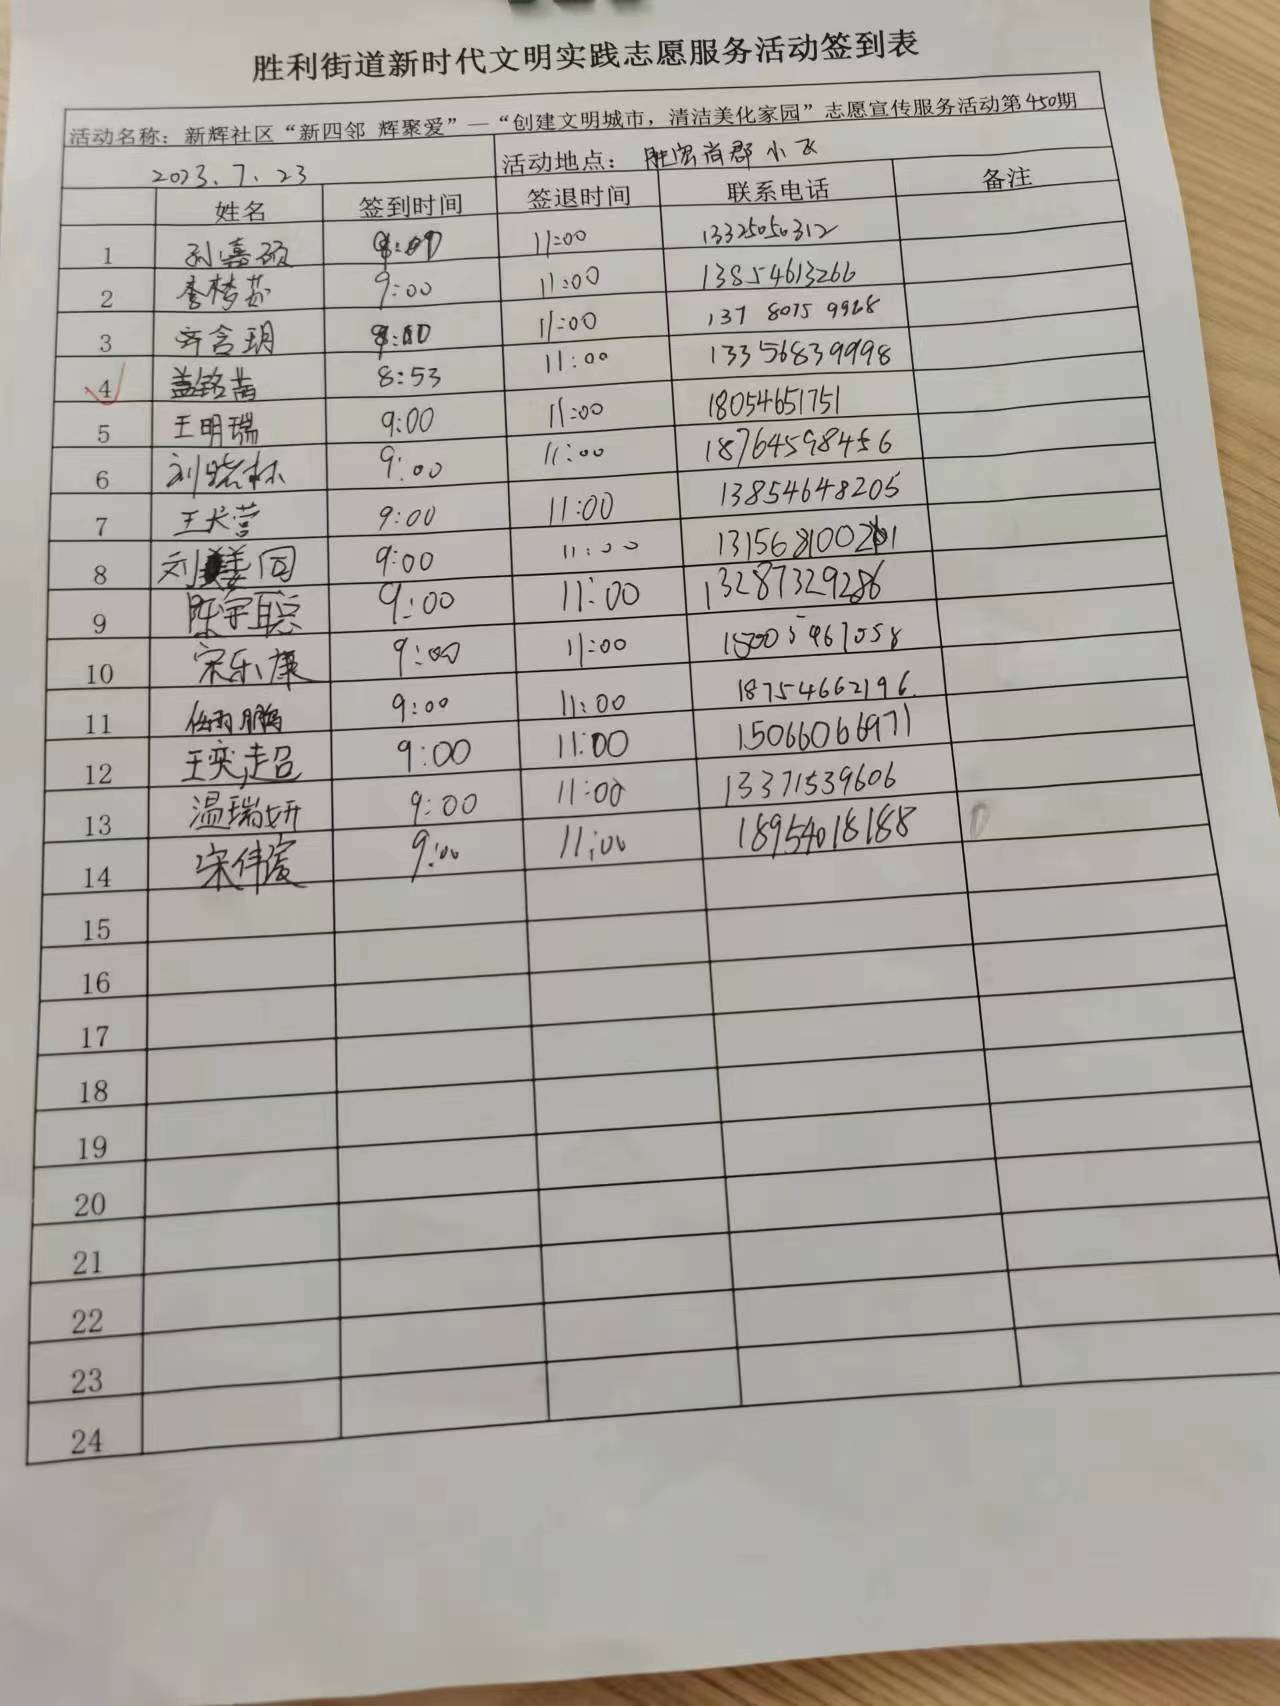 胜利街道新时代文明实践志愿服务活动签到表
活动名称：新辉社区“新四邻 辉聚爱”—“创建文明城市，清洁美化家园”志愿宣传服务活动第450期
2023.7.23 活动地点：胜宏尚郡小区
姓名 签到时间 签退时间 联系电话 备注
1 孙嘉硕 11:00 13325050312
2 李梦茹 9:00 11:00 13854613266
3 齐含玥 11:00 137 8075 9968
4 盖铭喆 8:53 11:00 13356839998
5 王明瑞 9:00 11:00 18054651751
6 刘晓林 9:00 11:00 18764598456
7 王犬营 9:00 11:00 13854648205
8 刘 9:00 11:00
9 陈宇聪 9:00 11:00 13287329286
10 宋乐康 9:00 11:00 15005461058
11 任雨鹏 9:00 11:00 18754662196
12 王奕超 9:00 11:00 15066066971
13 温瑞妍 9:00 11:00 13371539606
14 宋伟 9:00 11:00 18954018188
15
16
17
18
19
20
21
22
23
24